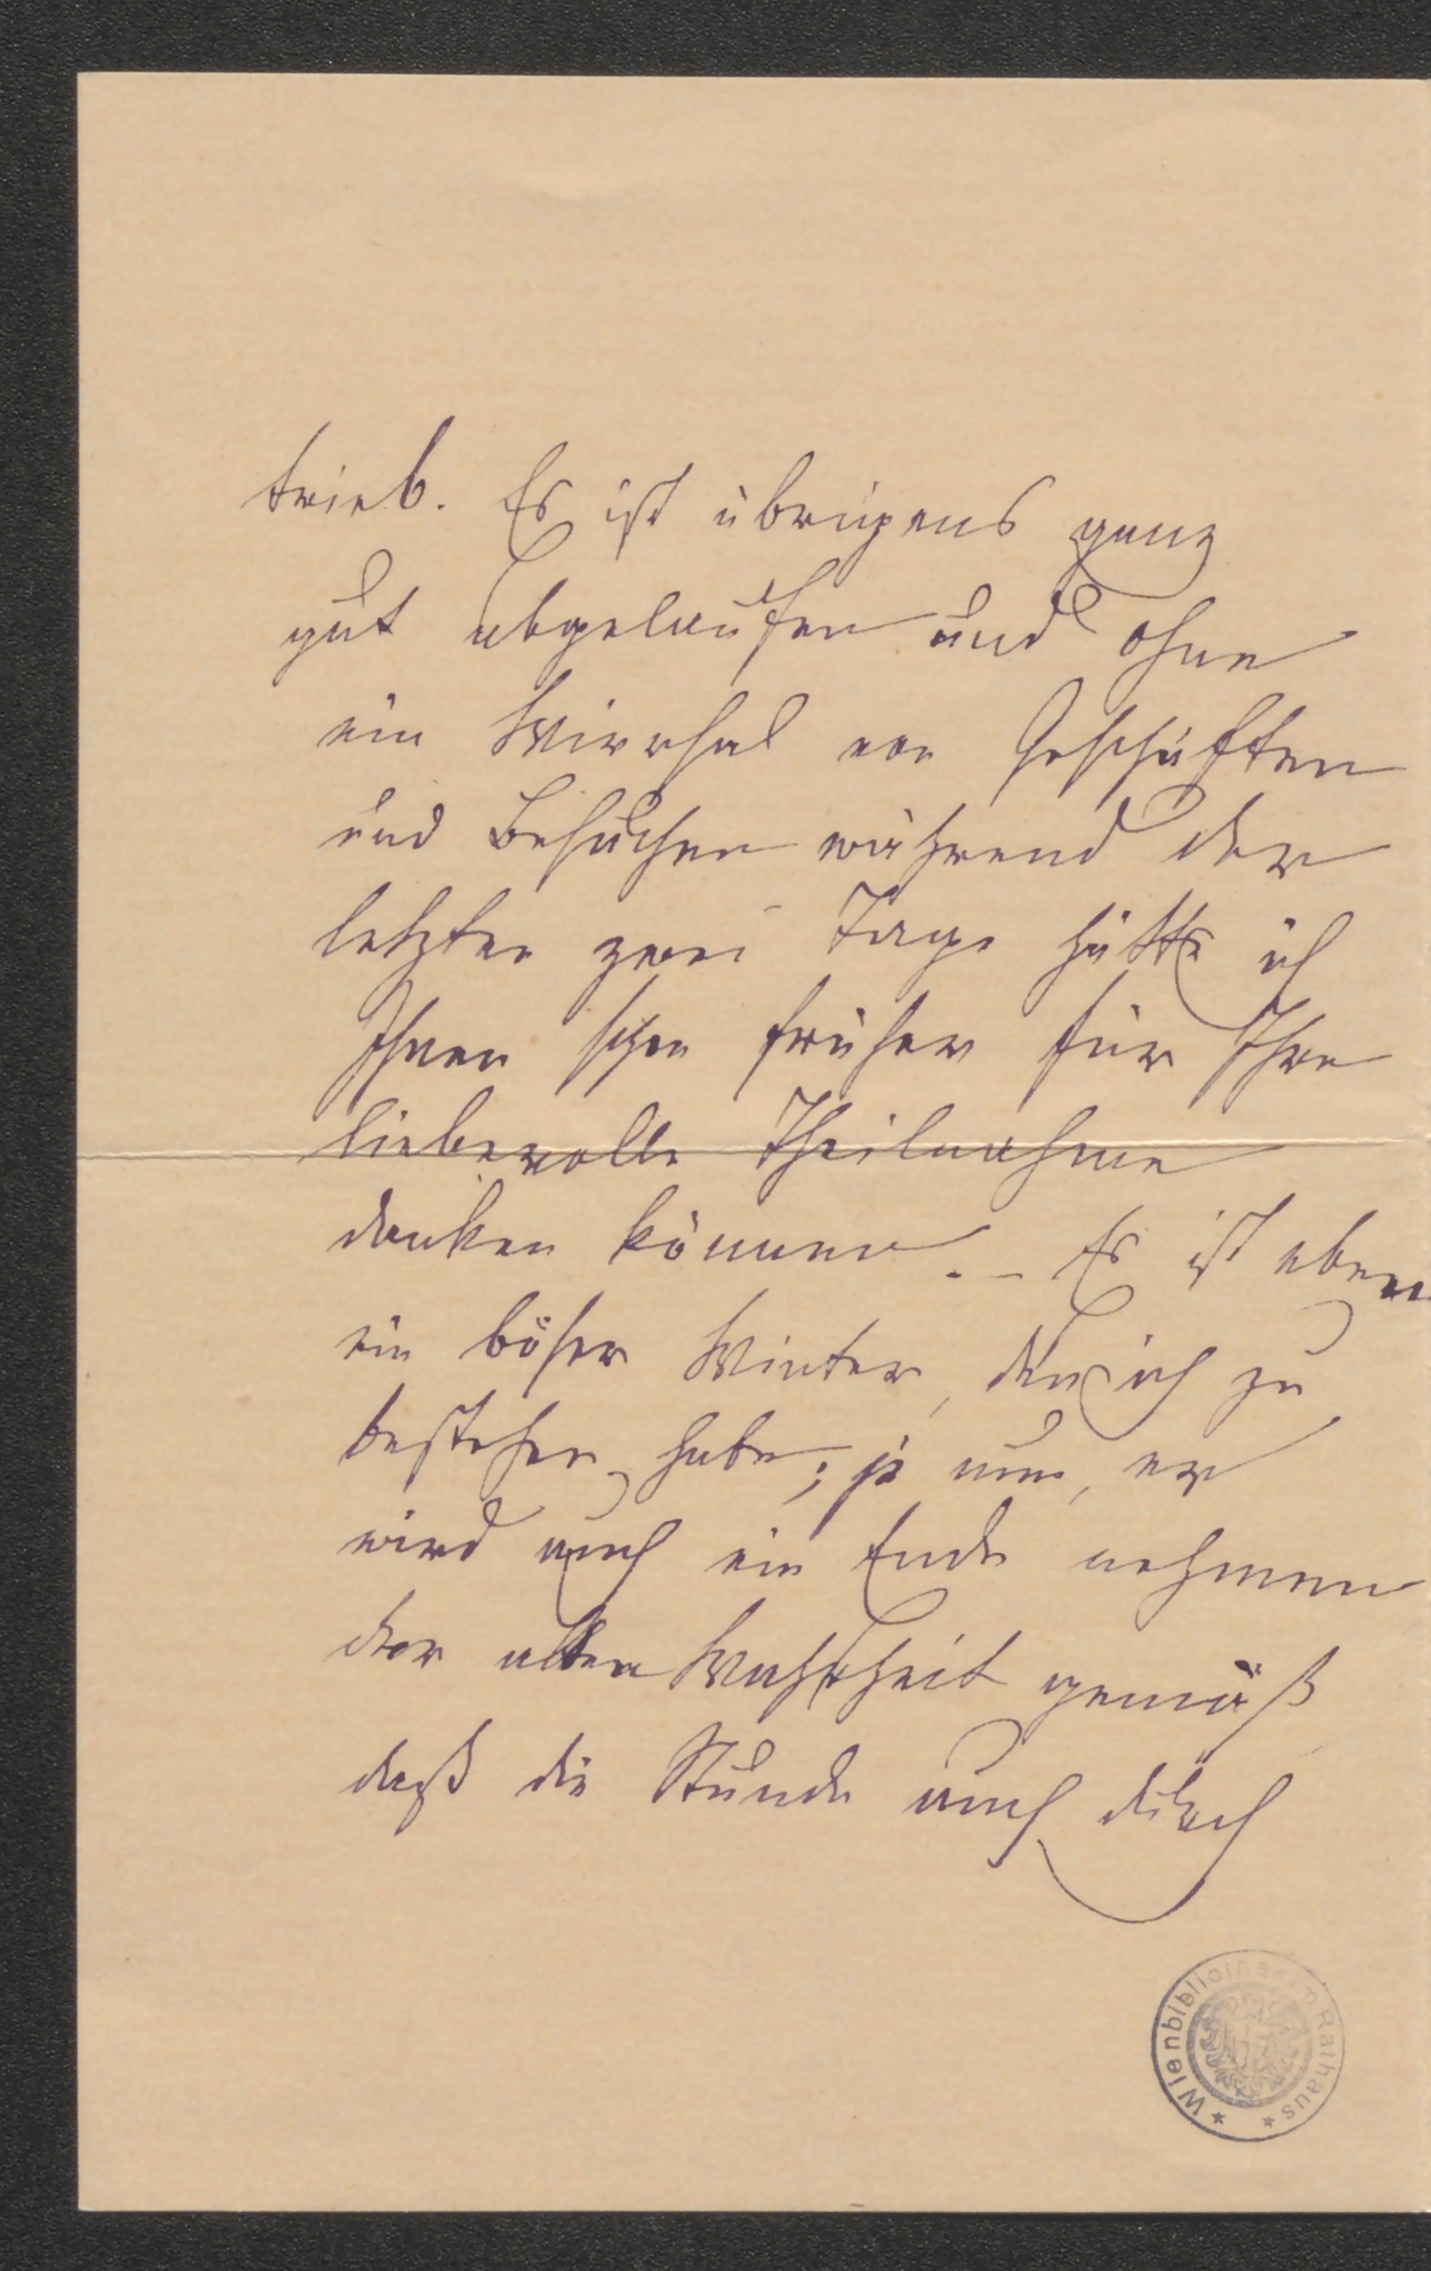 trieb. Es ist übrigens ganz
gut abgelaufen und ohne
ein Wirrsal von Geschäften
und Besuchen während der
letzten zwei Tage hätte ich
Ihnen schon früher für Ihre
liebevolle Theilnahme
danken können. – Es ist eben
ein böser Winter, den ich zu
bestehen habe; ja nun, er
wird auch ein Ende nehmen
der alten Wahrheit gemäß
daß die Stunde auch durch
Wienbibliothek im Rathaus